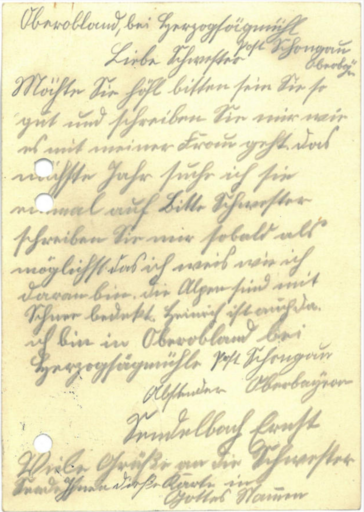 Oberobland, bei Herzogsägmühl
Post Schongau
Liebe Schwester Oberbay
Möchte Sie höfl bitten sein Sie so
gut und schreiben Sie mir wie
es mit meiner Frau geht. das
nächste Jahr suche ich sie
einmal auf Bitte Schwester
schreiben Sie mir sobald als
möglichst das ich weis wie ich
daran bin. die Alpen sind mit
Schnee bedekt. Heinrich ist auch da.
ich bin in Oberobland bei
Herzogsägmühle Post Schongau
Absender Oberbayern
Sendelbach Ernst
Viele Grüße an die Schwester
Sende Ihnen diese Karte in
Gottes Namen